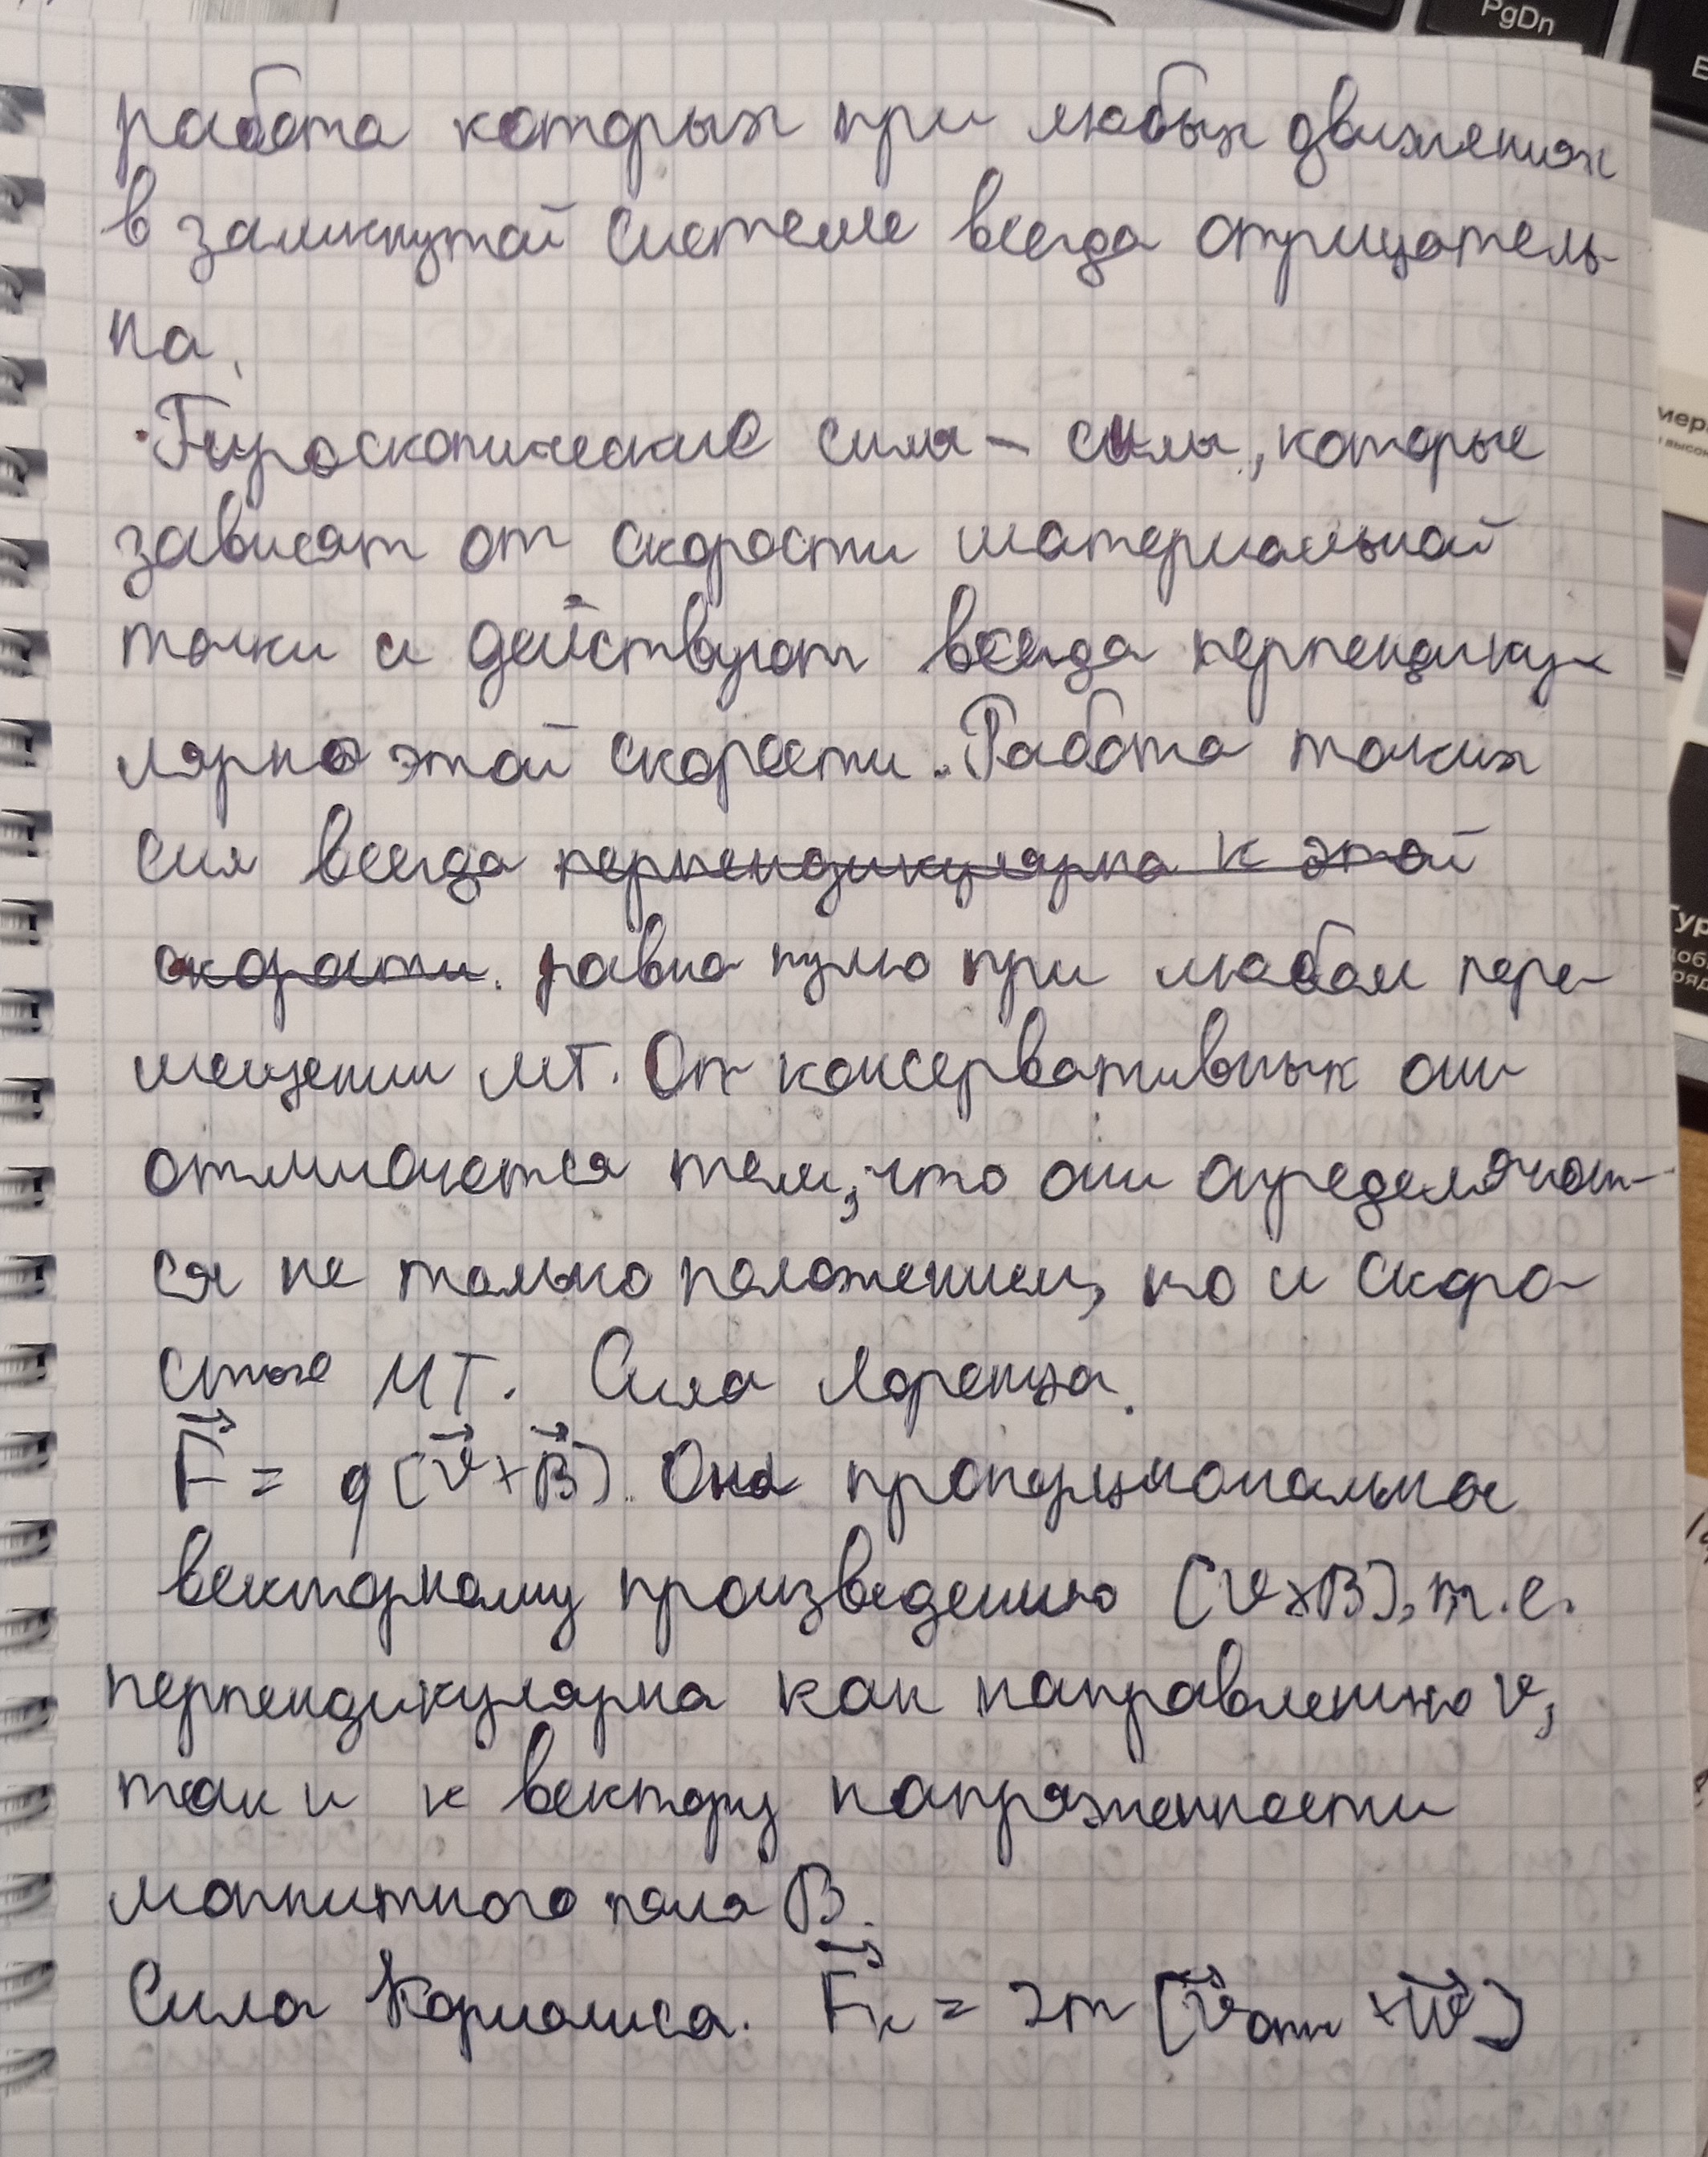 PgDn
работа которых при любых движениях
в замкнутой системе всегда отрицатель-
на.
Гироскопические силы – силы, которые
зависят от скорости материальной
точки и действуют всегда перпендику-
лярно этой скорости. Работа таких
сил всегда перпендикулярна к этой
скорости. равна нулю при любом пере-
мещении МТ. От консервативных они
отличаются тем, что они определяют-
ся не только положением, но и скоро
стью МТ. Сила Лоренца.
F⃗ = q[v⃗×B⃗]. Она пропорциональна
векторному произведению [v×B], т.е.
перпендикулярна как направлению v,
так и к вектору напряженности
магнитного поля B.
Сила Кориолиса. F⃗к = 2m [v⃗отн × w⃗]